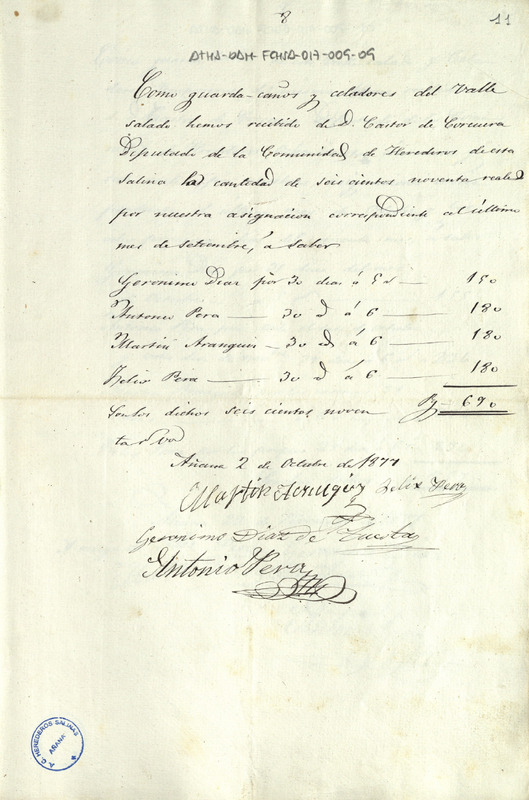 8
11
ATHA-DAH-FCHSA-017-009-09
Como guarda-caños y celadores del Valle
salado hemos recibido de D. Castor de Corcuera
Diputado de la Comunidad de Herederos de esta
Salina la cantidad de seis cientos noventa reales
por nuestra asignacion correspondiente al último
mes de setiembre, á saber
Geronimo Diaz por 30 dias á 5 r. — 150
Antonio Pera — 30 d á 6 — 180
Martin Aranguiz — 30 d á 6 — 180
Felix Pera — 30 d á 6 — 180
Son los dichos seis cientos noven 690
ta r.s v.on
Añana 2 de Octubre de 1877
Martin Aranguiz Felix Pera
Geronimo Diaz de Cuesta
Antonio Pera
A.C. HEREDEROS SALINAS
AÑANA